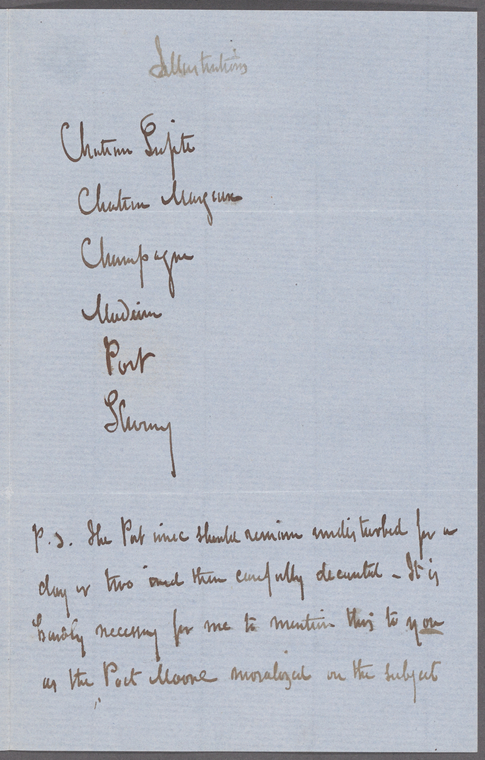 Illustrations
Chateau Lafite
Chateau Margaux
Champagne
Madeira
Port
Sherry
P.S. The Port wine should remain undisturbed for a
day or two and then carefully decanted - It is
hardly necessary for me to mention this to you
as the Poet Moore moralized on the subject